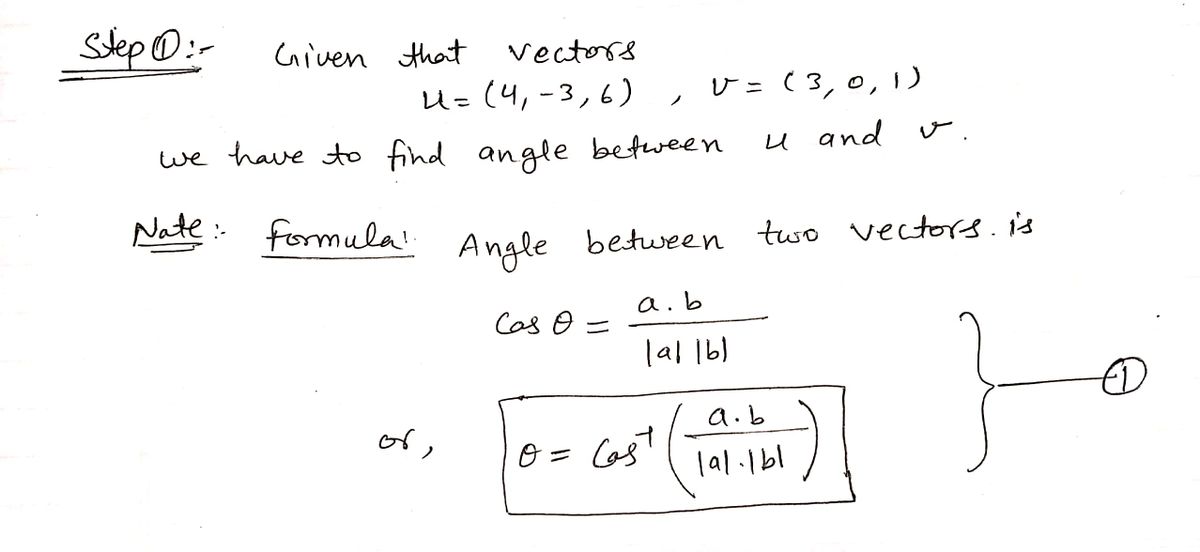 Step ①:- Given that vectors
u = (4, -3, 6) , v = (3, 0, 1)
we have to find angle between u and v.
Note :- formula! Angle between two vectors. is
Cos θ = a . b / |a| |b|
or, θ = Cos⁻¹ ( a . b / |a| . |b| ) } — ①